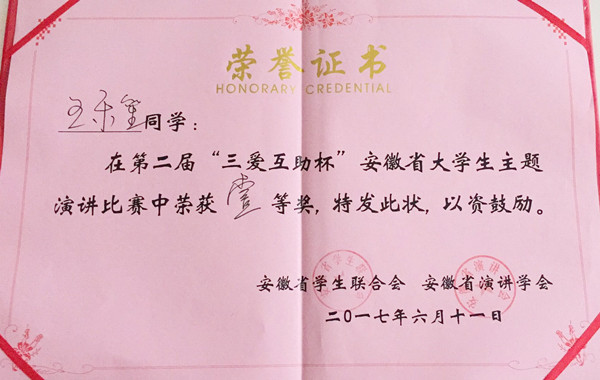 荣誉证书
HONORARY CREDENTIAL
王乐 同学：
在第二届“三爱互助杯”安徽省大学生主题
演讲比赛中荣获 壹 等奖，特发此状，以资鼓励。
安徽省学生联合会 安徽省演讲学会
二〇一七年六月十一日